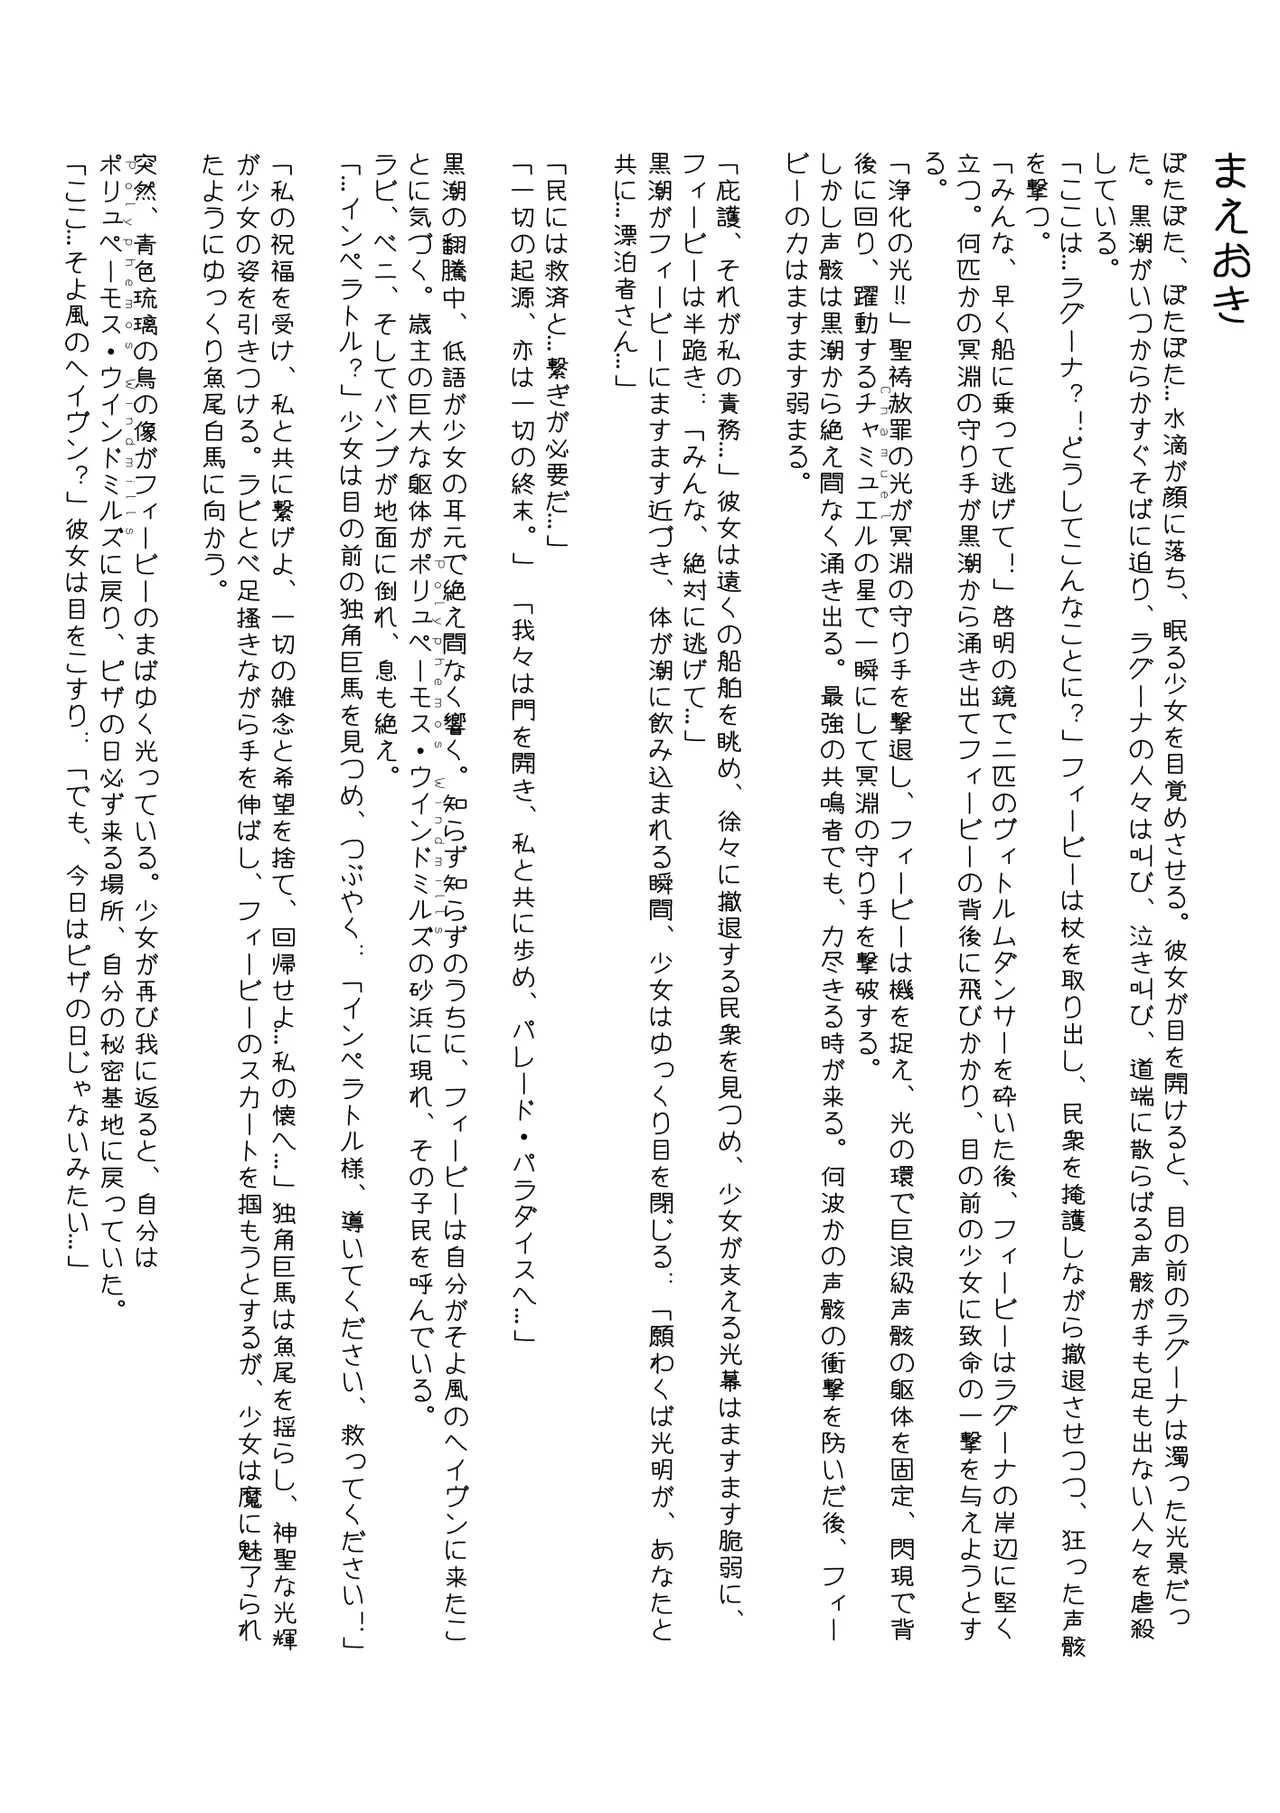 まえおき
ぽたぽた、ぽたぽた…水滴が顔に落ち、眠る少女を目覚めさせる。彼女が目を開けると、目の前のラグーナは濁った光景だっ
た。黒潮がいつからかすぐそばに迫り、ラグーナの人々は叫び、泣き叫び、道端に散らばる声骸が手も足も出ない人々を虐殺
している。
「ここは…ラグーナ？！どうしてこんなことに？」フィービーは杖を取り出し、民衆を掩護しながら撤退させつつ、狂った声骸
を撃つ。
「みんな、早く船に乗って逃げて！」啓明の鏡で二匹のヴィトルムダンサーを砕いた後、フィービーはラグーナの岸辺に堅く
立つ。何匹かの冥淵の守り手が黒潮から涌き出てフィービーの背後に飛びかかり、目の前の少女に致命の一撃を与えようとす
る。
「浄化の光!!」聖祷赦罪の光が冥淵の守り手を撃退し、フィービーは機を捉え、光の環で巨浪級声骸の躯体を固定、閃現で背
後に回り、躍動するチャミュエルの星で一瞬にして冥淵の守り手を撃破する。
Chamuel
しかし声骸は黒潮から絶え間なく涌き出る。最強の共鳴者でも、力尽きる時が来る。何波かの声骸の衝撃を防いだ後、フィー
ビーの力はますます弱まる。
「庇護、それが私の責務…」彼女は遠くの船舶を眺め、徐々に撤退する民衆を見つめ、少女が支える光幕はますます脆弱に、
フィービーは半跪き：「みんな、絶対に逃げて…」
黒潮がフィービーにますます近づき、体が潮に飲み込まれる瞬間、少女はゆっくり目を閉じる：「願わくば光明が、あなたと
共に…漂泊者さん…」
「民には救済と…繋ぎが必要だ…」
「一切の起源、亦は一切の終末。」「我々は門を開き、私と共に歩め、パレード・パラダイスへ…」
黒潮の翻騰中、低語が少女の耳元で絶え間なく響く。知らず知らずのうちに、フィービーは自分がそよ風のヘイヴンに来たこ
とに気づく。歳主の巨大な躯体がポリュペーモス・ウインドミルズの砂浜に現れ、その子民を呼んでいる。
Polyphemos Windmills
ラビ、ベニ、そしてバンブが地面に倒れ、息も絶え。
「…インペラトル？」少女は目の前の独角巨馬を見つめ、つぶやく：「インペラトル様、導いてください、救ってください！」
「私の祝福を受け、私と共に繋げよ、一切の雑念と希望を捨て、回帰せよ…私の懐へ…」独角巨馬は魚尾を揺らし、神聖な光輝
が少女の姿を引きつける。ラビとべ足掻きながら手を伸ばし、フィービーのスカートを掴もうとするが、少女は魔に魅了られ
たようにゆっくり魚尾白馬に向かう。
突然、青色琉璃の鳥の像がフィービーのまばゆく光っている。少女が再び我に返ると、自分は
ポリュペーモス・ウインドミルズに戻り、ピザの日必ず来る場所、自分の秘密基地に戻っていた。
Polyphemos Windmills
「ここ…そよ風のヘイヴン？」彼女は目をこすり：「でも、今日はピザの日じゃないみたい…」